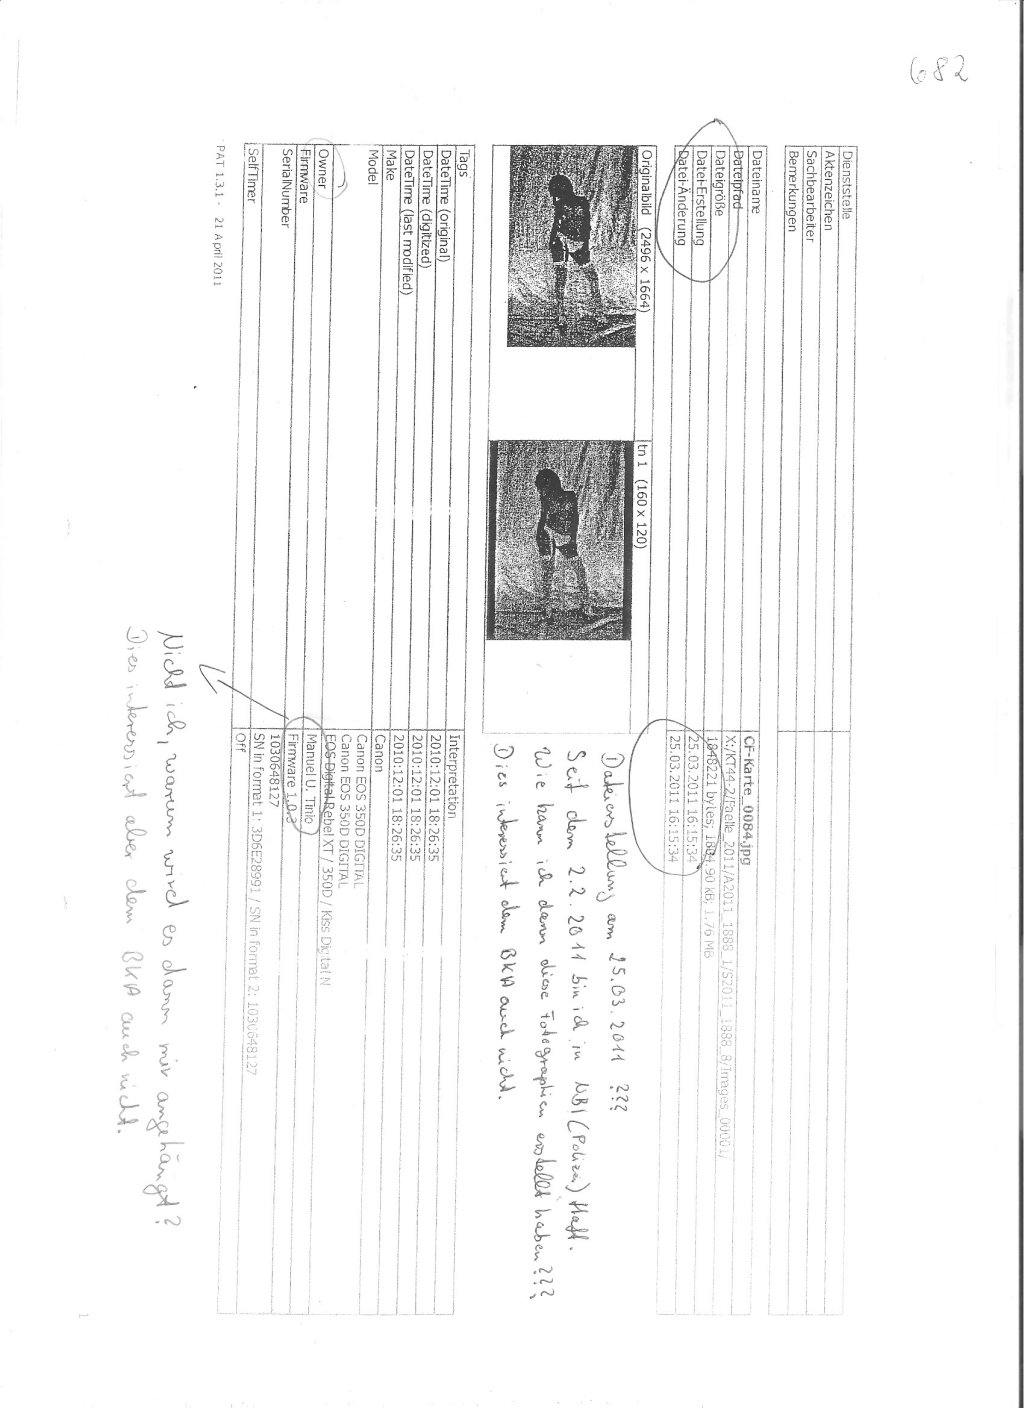 682
Dienststelle
Aktenzeichen
Sachbearbeiter
Bemerkungen
Dateiname CF-Karte_0084.jpg
Dateipfad X:/KT44-2/Faelle_2011/A2011_1888_1/S2011_1888_8/Images_00001/
Dateigröße 1848221 bytes; 1804.90 kB; 1.76 MB
Datei-Erstellung 25.03.2011 16:15:34
Datei-Änderung 25.03.2011 16:15:34
Originalbild (2496 x 1664) tn 1 (160 x 120)
Dateierstellung am 25.03.2011 ???
Seit dem 2.2.2011 bin ich in NBI (Polizei) Haft.
Wie kann ich dann diese Fotographien erstellt haben???
Dies interessiert dem BKA auch nicht.
Tags Interpretation
DateTime (original) 2010:12:01 18:26:35
DateTime (digitized) 2010:12:01 18:26:35
DateTime (last modified) 2010:12:01 18:26:35
Make Canon
Model Canon EOS 350D DIGITAL
Canon EOS 350D DIGITAL
EOS Digital Rebel XT / 350D / Kiss Digital N
Owner Manuel U. Tinio
Firmware Firmware 1.0.3
SerialNumber 1030648127
SN in format 1: 3D6E28991 / SN in format 2: 1030648127
SelfTimer Off
PAT 1.3.1 - 21 April 2011
Nicht ich, warum wird es dann mir angehängt?
Dies interessiert aber dem BKA auch nicht.
1